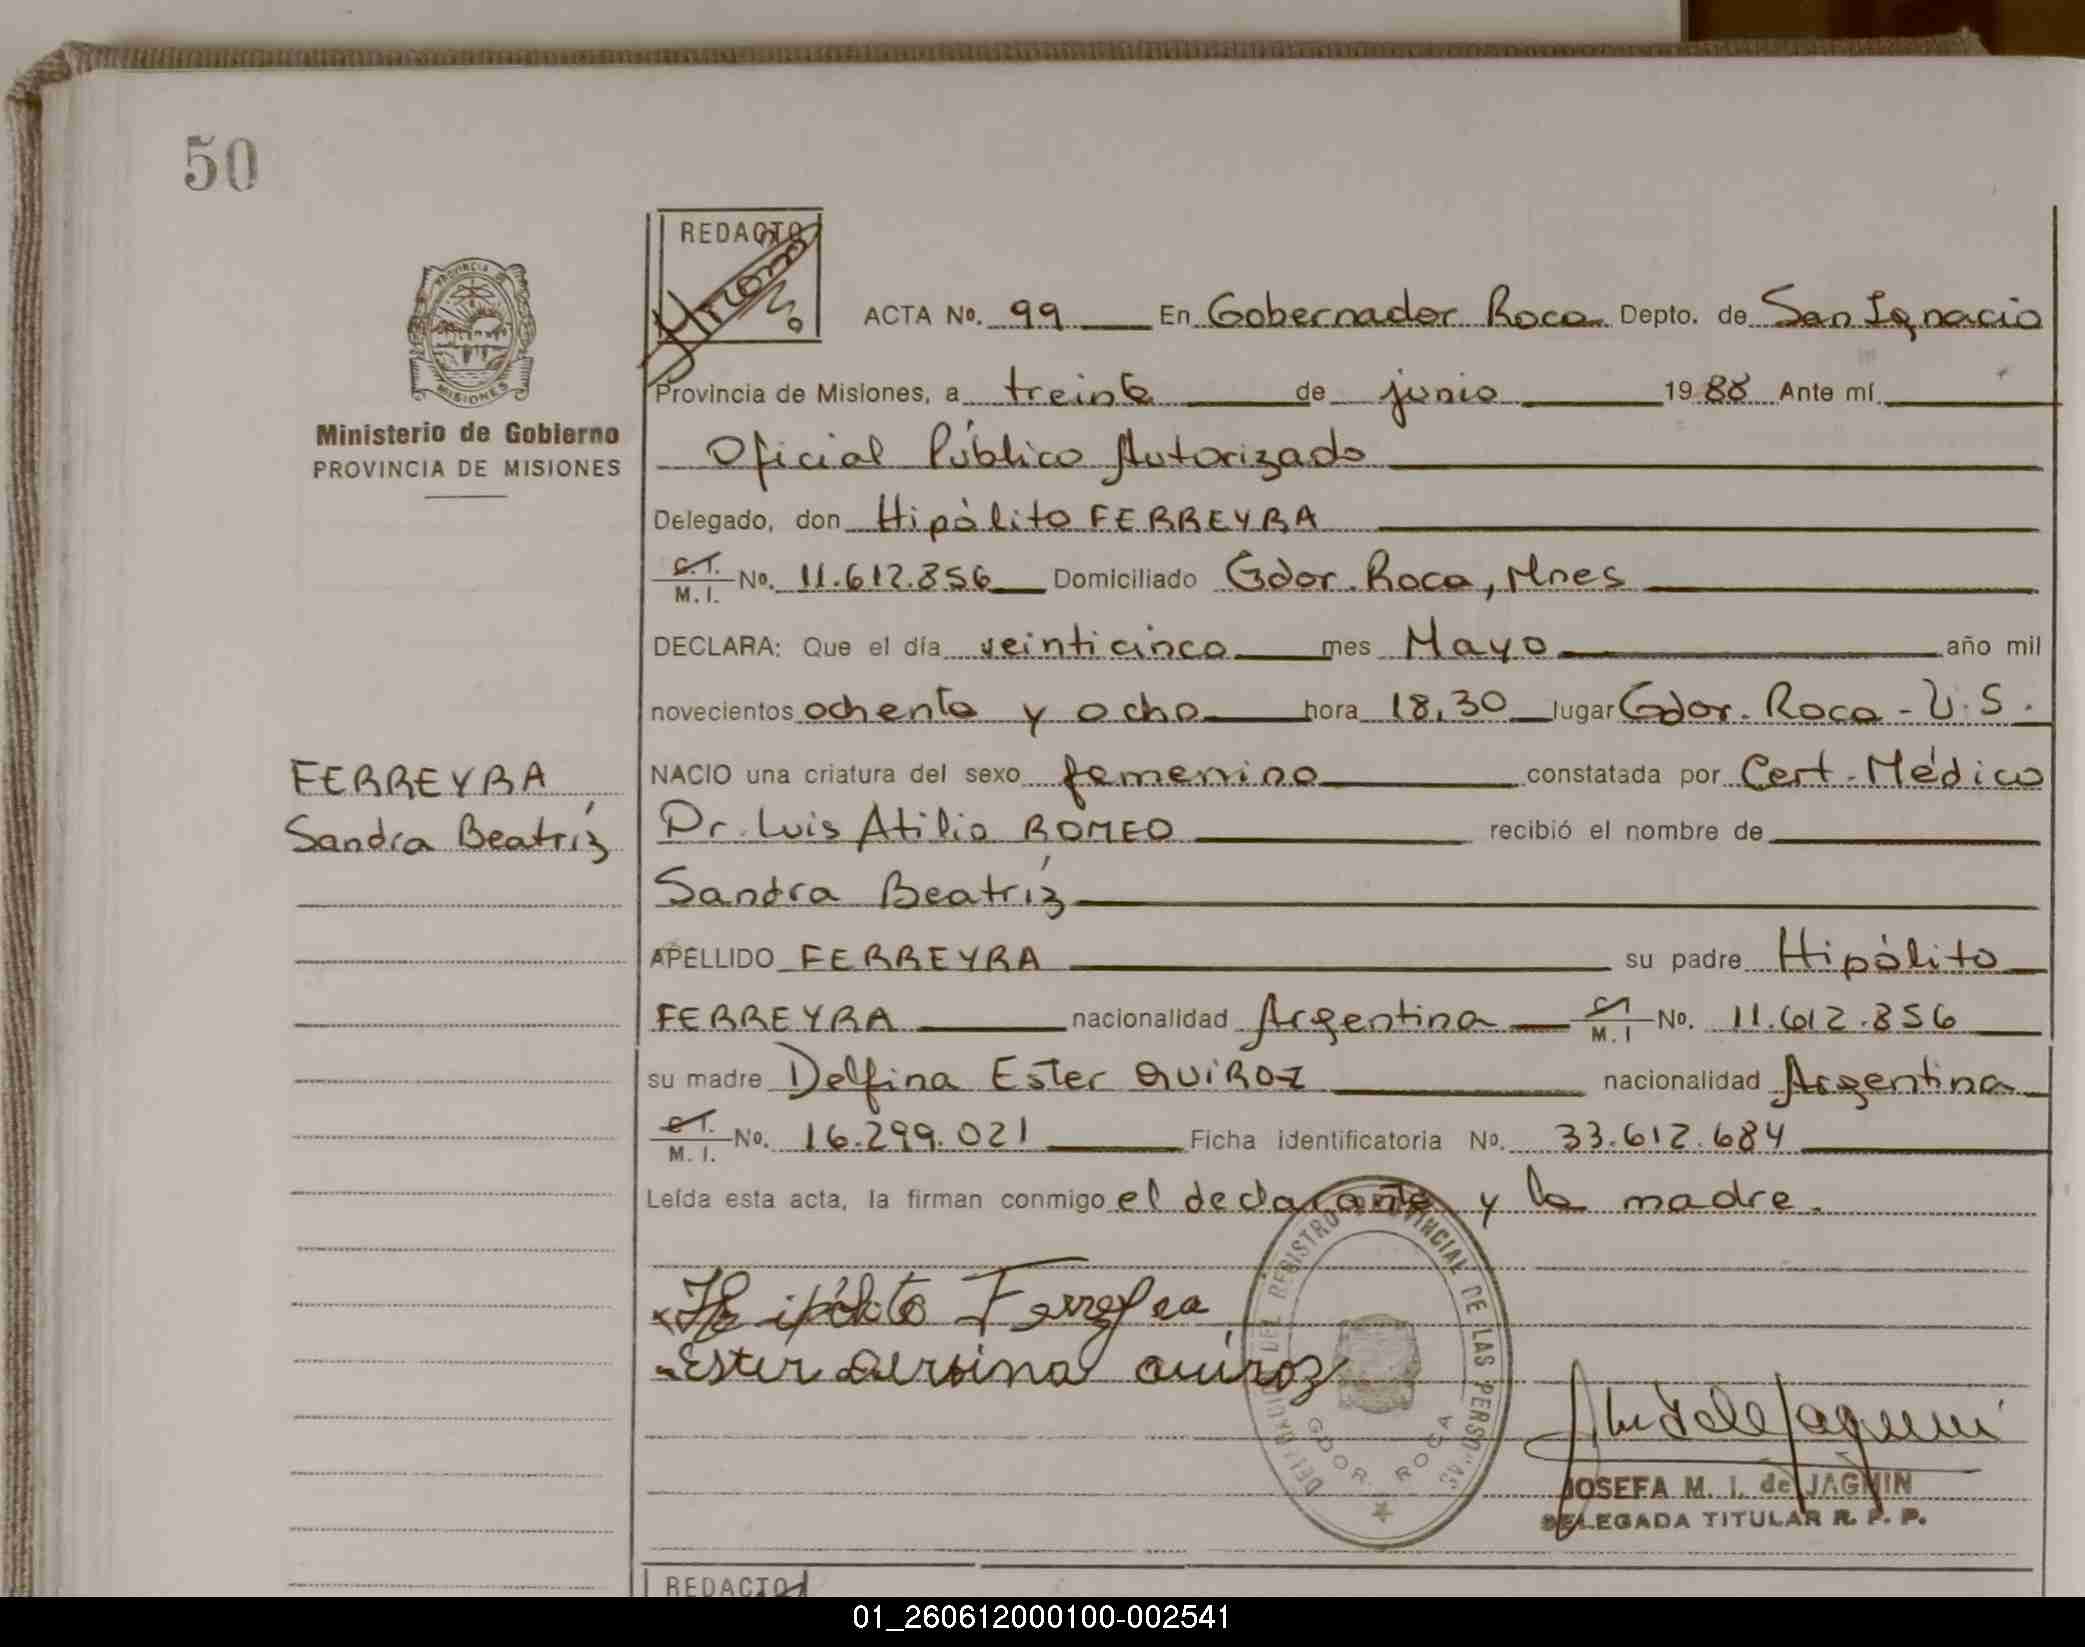 50
REDACTO
ACTA No. 99 En Gobernador Roca Depto. de San Ignacio
Provincia de Misiones, a treinta de junio 1988 Ante mí
Ministerio de Gobierno
PROVINCIA DE MISIONES
Oficial Público Autorizado
Delegado, don Hipólito FERREYRA
C.I. M.I. No. 11.612.856 Domiciliado Gdor. Roca, Mnes
DECLARA: Que el día veinticinco mes Mayo año mil
novecientos ochenta y ocho hora 18,30 lugar Gdor. Roca - U.S.
FERREYRA
Sandra Beatríz
NACIO una criatura del sexo femenino constatada por Cert. Médico
Dr. Luis Atilio ROMEO recibió el nombre de
Sandra Beatríz
APELLIDO FERREYRA su padre Hipólito
FERREYRA nacionalidad Argentina CI M.I No. 11.612.856
su madre Delfina Ester QUIROZ nacionalidad Argentina
C.I. M.I. No. 16.299.021 Ficha identificatoria No. 33.612.684
Leída esta acta, la firman conmigo el declarante y la madre.
Hipólito Ferreyra
Ester Quiroz
DEL REGISTRO PROVINCIAL DE LAS PERSONAS
GDOR. ROCA
JOSEFA M. I. de JAGMIN
DELEGADA TITULAR R. P. P.
REDACTO
01_260612000100-002541